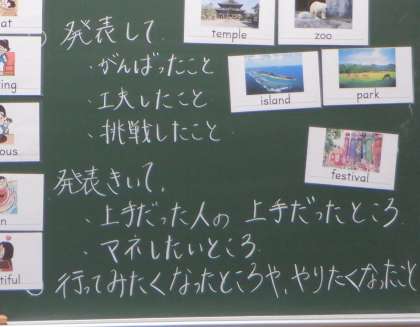 temple
zoo
発表して
・がんばったこと
・工夫したこと
・挑戦したこと
island
park
festival
発表きいて、
・上手だった人の 上手だったところ
・マネしたいところ
行ってみたくなったところや、やりたくなったこと